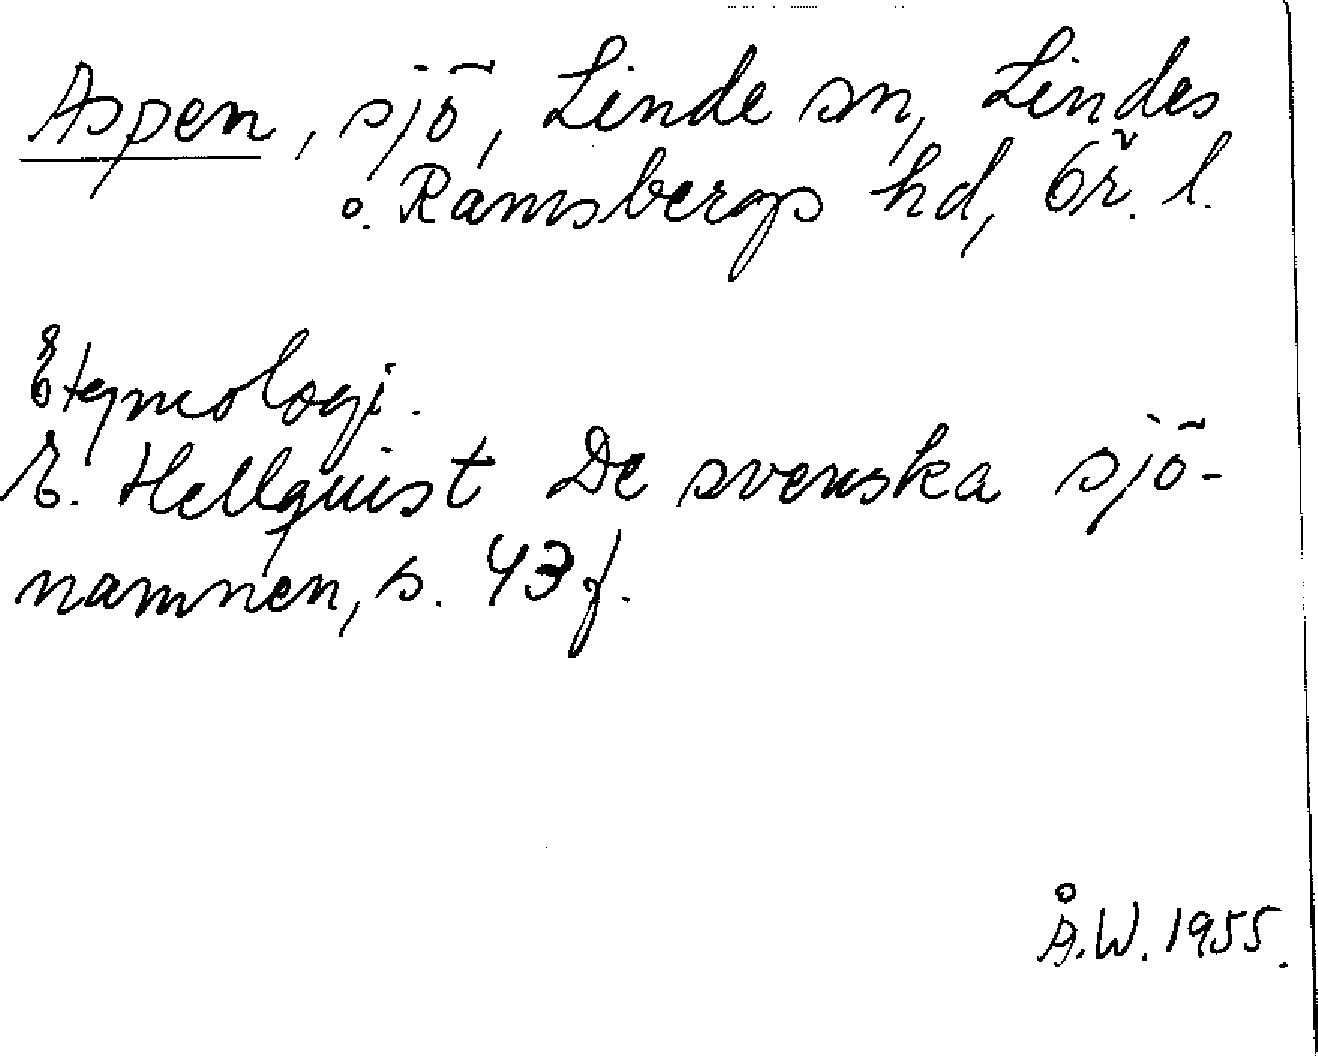 Aspen, sjö, Linde sn, Lindes
o. Ramsbergs hd, Ör. l.
Etymologi.
E. Hellquist De svenska sjö-
namnen, s. 43 f.
Å.W. 1955.